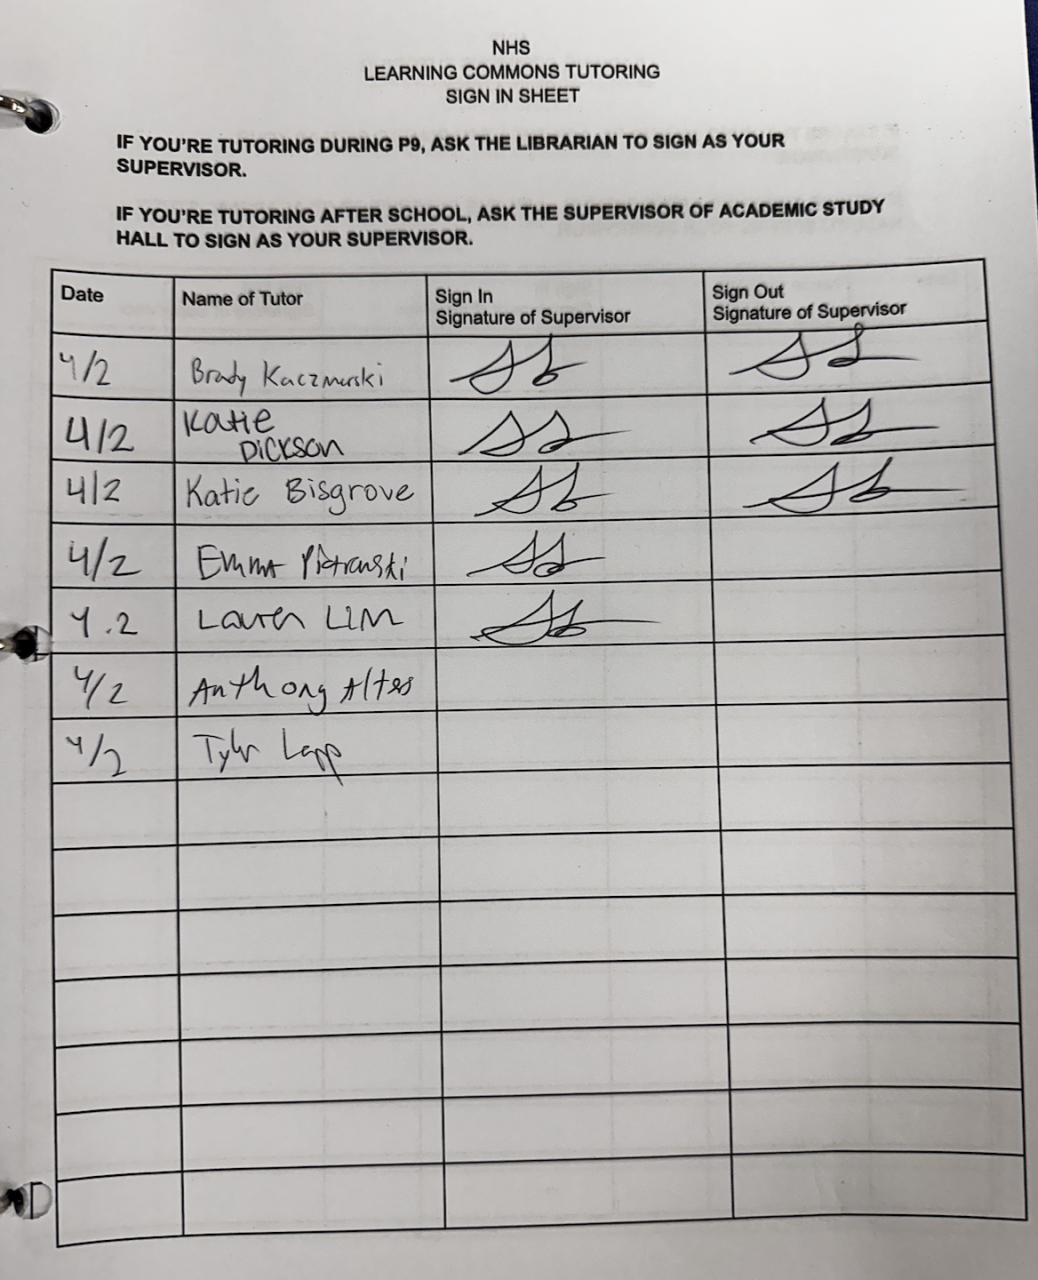 NHS
LEARNING COMMONS TUTORING
SIGN IN SHEET
IF YOU'RE TUTORING DURING P9, ASK THE LIBRARIAN TO SIGN AS YOUR
SUPERVISOR.
IF YOU'RE TUTORING AFTER SCHOOL, ASK THE SUPERVISOR OF ACADEMIC STUDY
HALL TO SIGN AS YOUR SUPERVISOR.
Date Name of Tutor Sign In Sign Out
Signature of Supervisor Signature of Supervisor
4/2 Brady Kaczmarski
4/2 Katie
Dickson
4/2 Katie Bisgrove
4/2 Emma
4.2 Lauren Lim
4/2 Anthony
4/2 Tyler Lapp